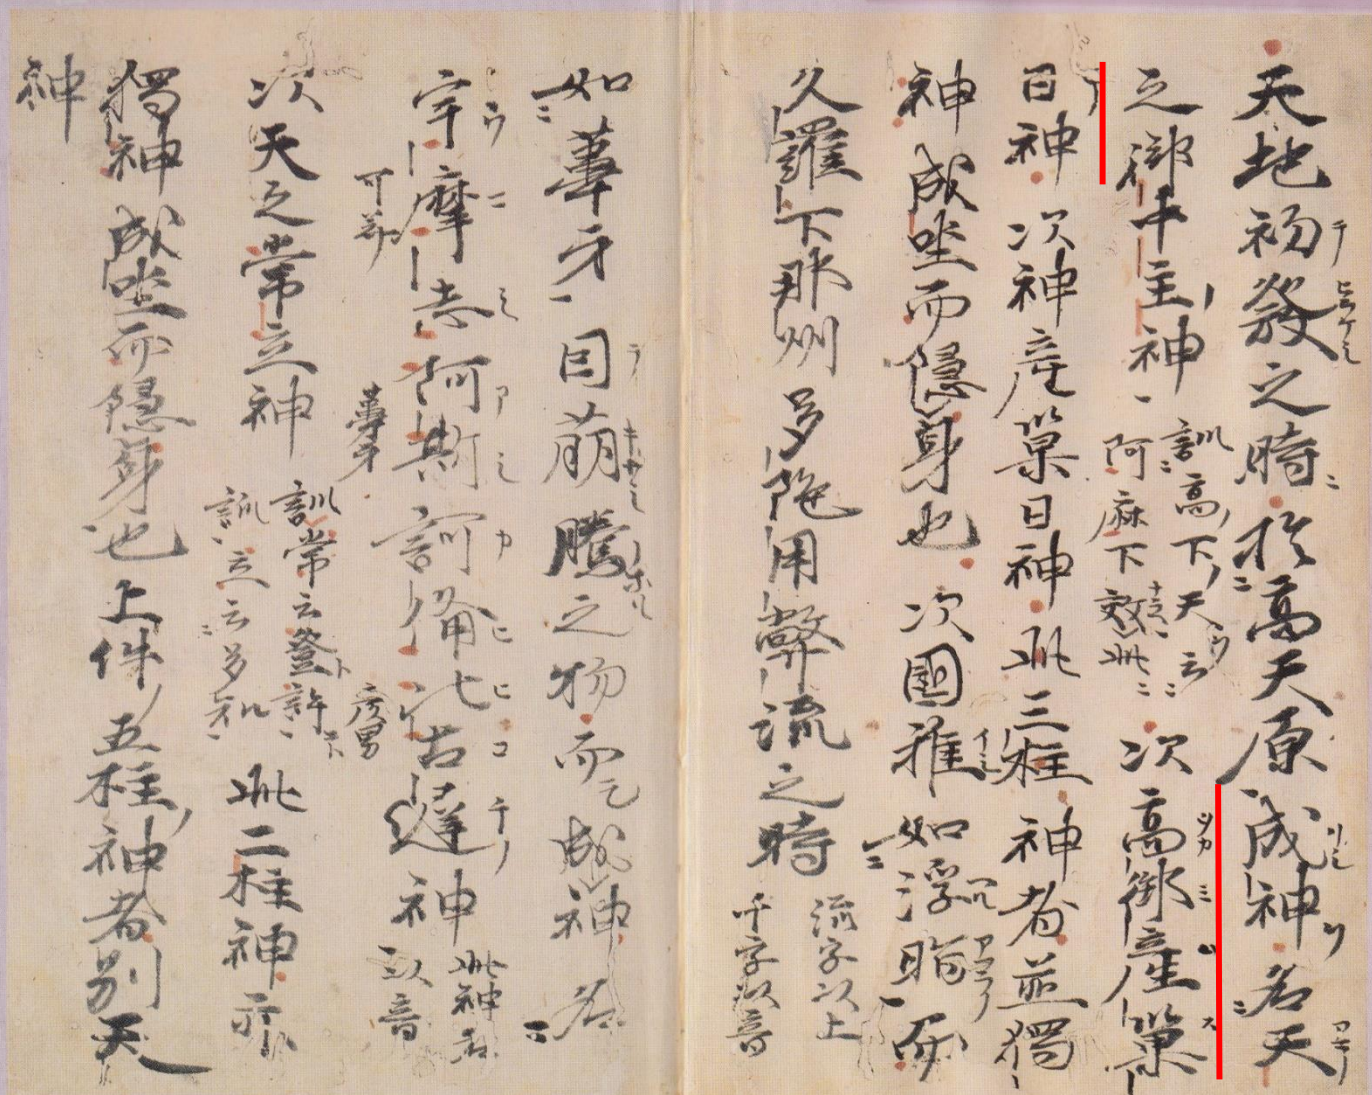 天地初發之時於高天原成神名天
之御中主神訓高下天云阿麻下效此次高御産巢
日神次神産巢日神此三柱神者並獨
神成坐而隱身也次國稚如浮脂而
久羅下那州多陁用弊流之時流字以上千字以音
如葦牙目萠騰之物而成神名
宇摩志阿斯訶備比古遅神此神名以音
ウマシアシカヒヒコチノ
可美
葦牙
彦男
次天之常立神訓常云登許訓立云多知此二柱神亦
獨神成坐而隱身也上件五柱神者別天
神